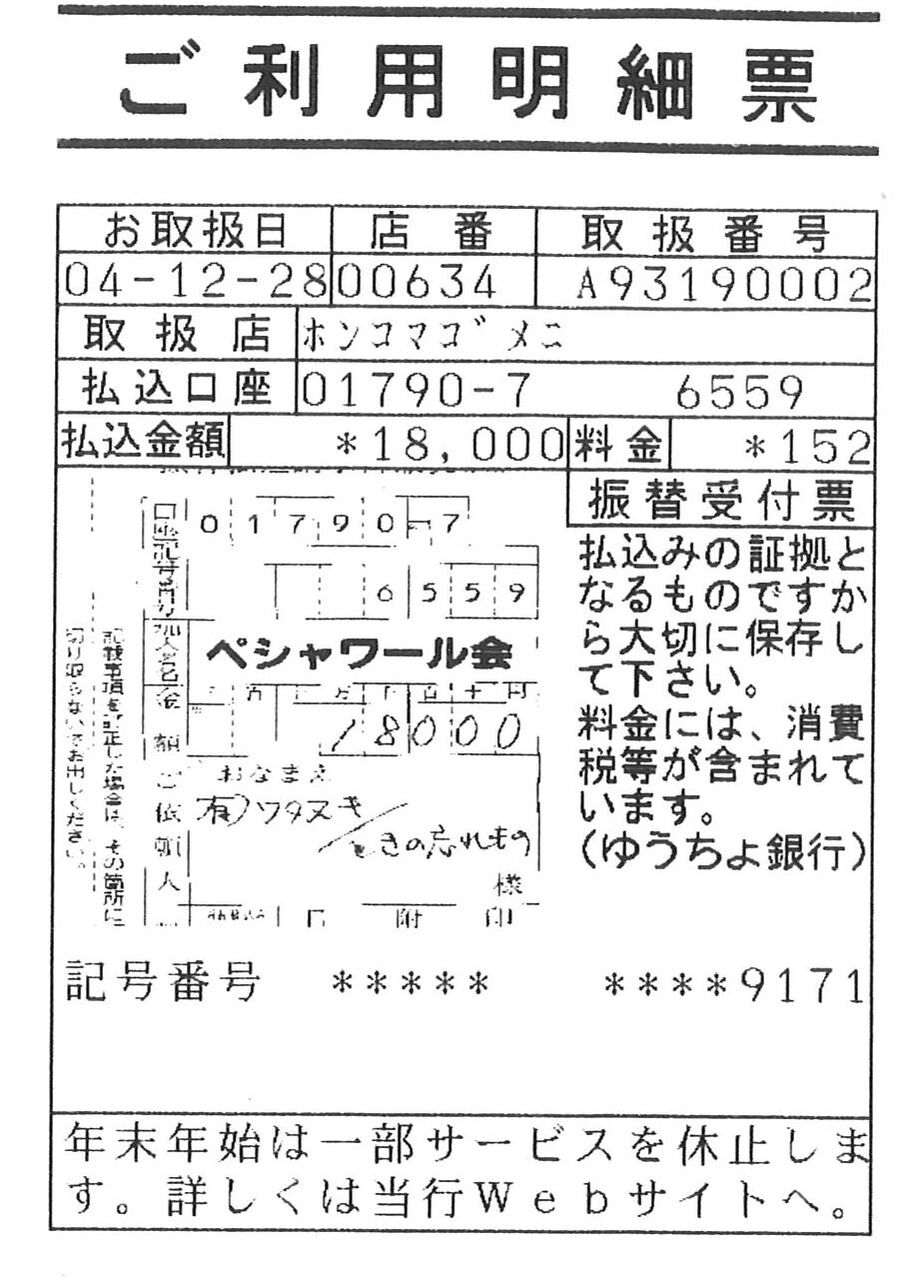 ご利用明細票
お取扱日 店番 取扱番号
04-12-28 00634 A93190002
取扱店 ホンコマゴメニ
払込口座 01790-7 6559
払込金額 *18,000 料金 *152
振替受付票
払込みの証拠と
なるものですか
ら大切に保存し
て下さい。
料金には、消費
税等が含まれて
います。
(ゆうちょ銀行)
01790-7
6559
加入者名 ペシャワール会
金額 18000
ご依頼人
おなまえ
有)ワタヌキ
/ときの忘れもの
様
附 印
記載事項を訂正した場合は、その箇所に
切り取らないでお出しください。
記号番号 ***** ****9171
年末年始は一部サービスを休止しま
す。詳しくは当行Webサイトへ。